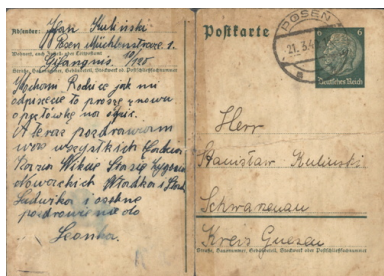 Absender: Jan Kuliński
Posen Mühlenstrasse 1.
Wohnort, auch Zustell- oder Leitpostamt
Gefängnis. 10/
Straße, Hausnummer, Gebäudeteil, Stockwerk od. Postschließfachnummer
Kochani Rodzice jak mi
odpiszecie to proszę znowu
o pocztówkę na odpis.
A teraz pozdrawiam
was wszystkich
Kazia
Władka i
Ludwika i osobne
pozdrowienie do
Leonka.
Postkarte
POSEN
21. 3.4
6
6
Deutsches Reich
Herr
Stanisław Kulinski
Schwarzenau
Kreis Gnesen
Straße, Hausnummer, Gebäudeteil, Stockwerk oder Postschließfachnummer